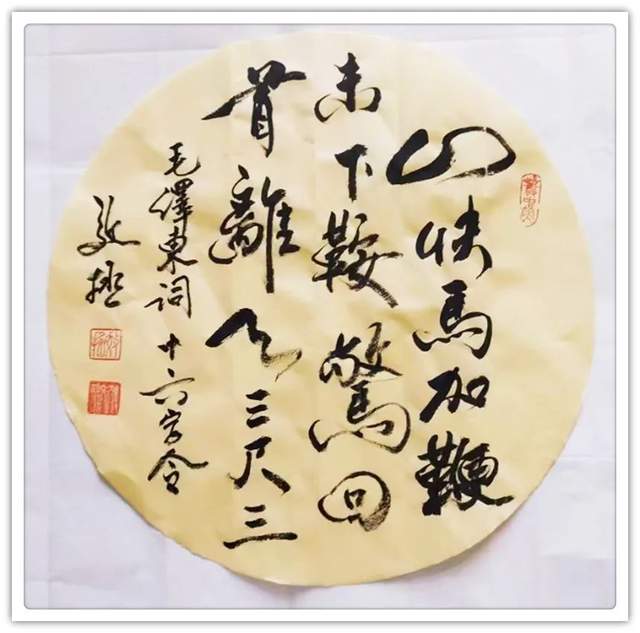 山快馬加鞭
未下鞍驚回
首離天三尺三
毛澤東詞十六字令